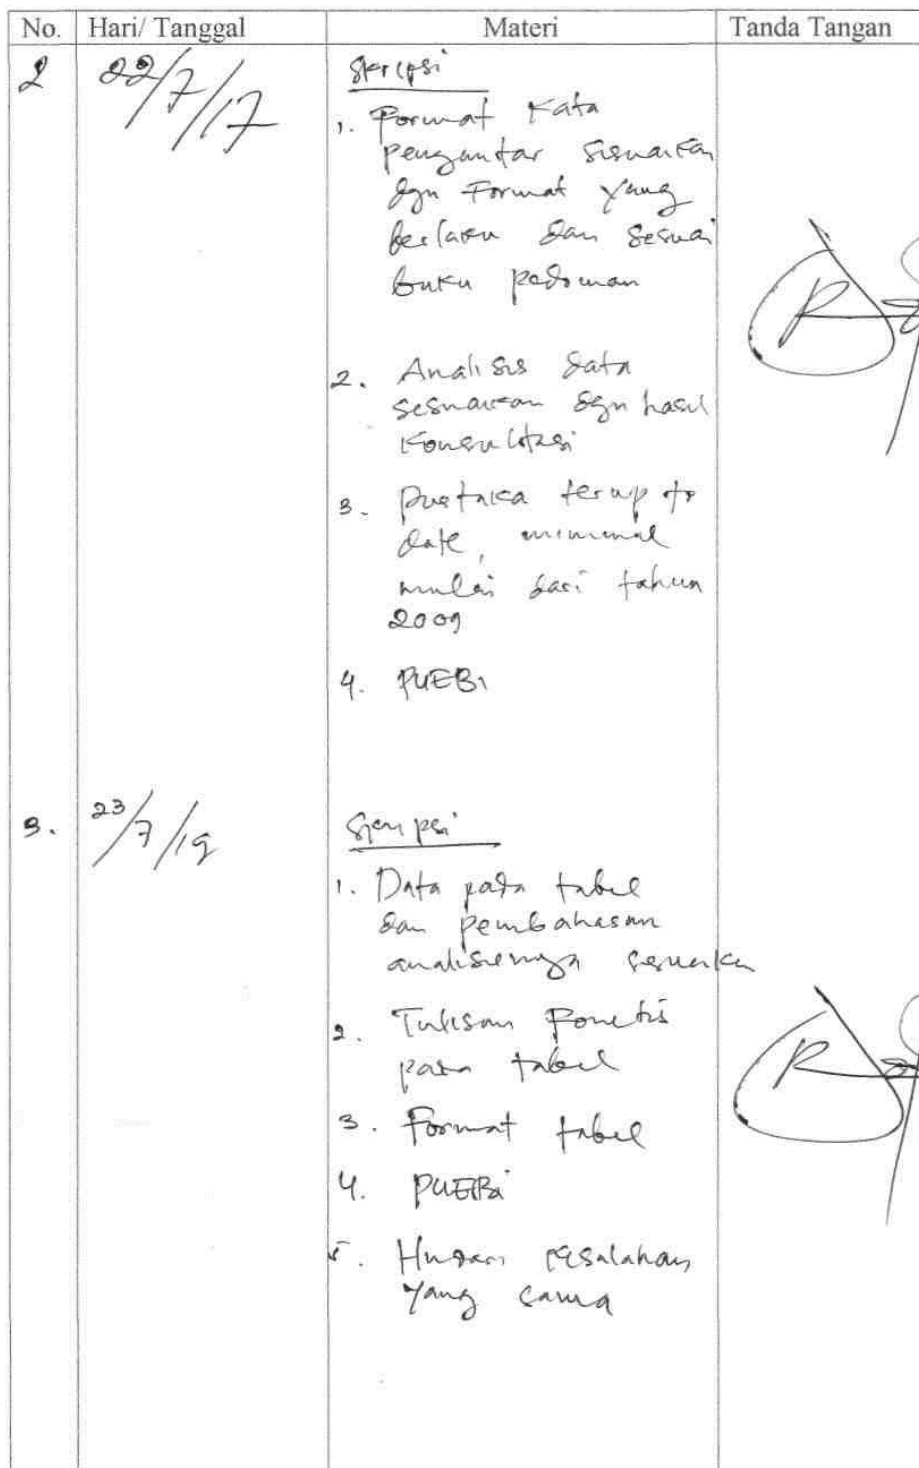 No. Hari/ Tanggal Materi Tanda Tangan
2 22/7/17 Skripsi
1. Format Kata
pengantar sesuaikan
dgn Format yang
berlaku dan sesuai
buku pedoman
2. Analisis data
sesuaikan dgn hasil
Konsultasi
3. Pustaka terup to
date, minimal
mulai dari tahun
2009
4. PUEBI
3. 23/7/19 Skripsi
1. Data pada tabel
dan pembahasan
analisisnya sesuaikan
2. Tulisan Fonetis
pada tabel
3. Format tabel
4. PUEBI
5. Hindari kesalahan
yang sama